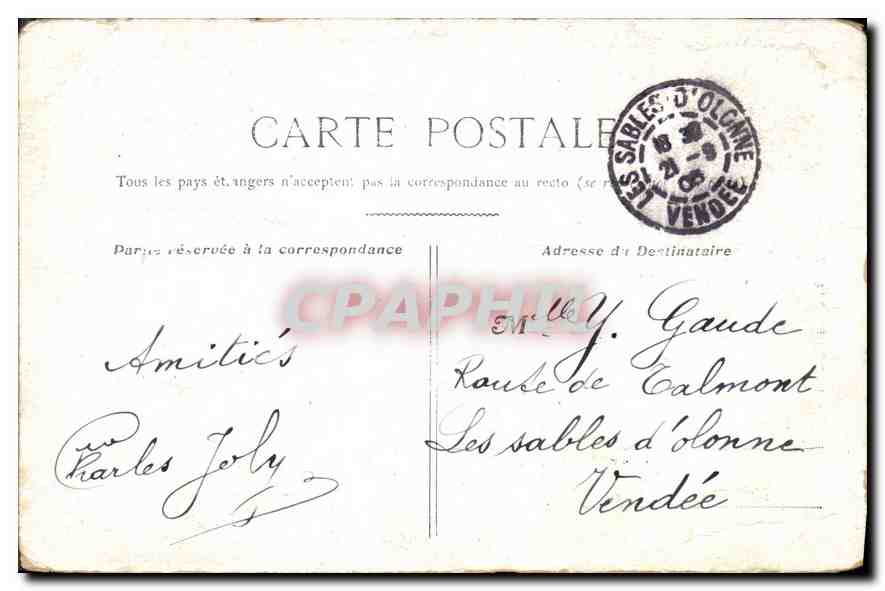 CARTE POSTALE
Tous les pays étrangers n'acceptent pas la correspondance au recto (se
LES SABLES D'OLONNE
18 30
21 - 9
VENDÉE
Partie réservée à la correspondance
Adresse du Destinataire
CPAPHIL
Amitiés
Charles Joly
Mlle Y. Gaude
Route de Talmont
Les sables d'olonne
Vendée